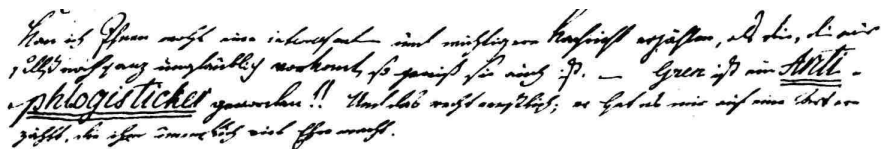 Kan ich Ihnen wohl eine interessante und wichtigere Nachricht erzählen, als die, die mir
selbst noch ganz unglaublich vorkomt, so gewiß sie auch ist. — Gren ist ein Anti-
phlogisticker geworden!! Und das recht ernstlich; er hat es mir auf eine Art er-
zählt, die ihm unendlich viel Ehre macht.